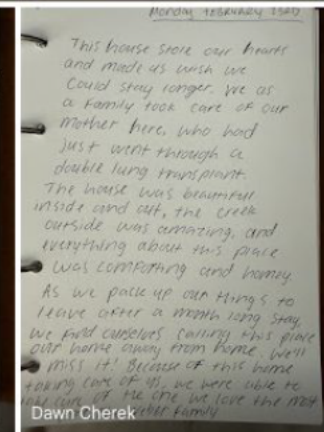 Monday February
This house stole our hearts
and made us wish we
could stay longer. We as
a family took care of our
mother here, who had
just went through a
double lung transplant.
The house was beautiful
inside and out, the creek
outside was amazing, and
everything about this place
was comforting and homey.
As we pack up our things to
leave after a month long stay,
we find ourselves calling this place
our home away from home. We'll
miss it! Because of this home
taking care of us, we were able to
take care of the one we love the most
Family
Dawn Cherek